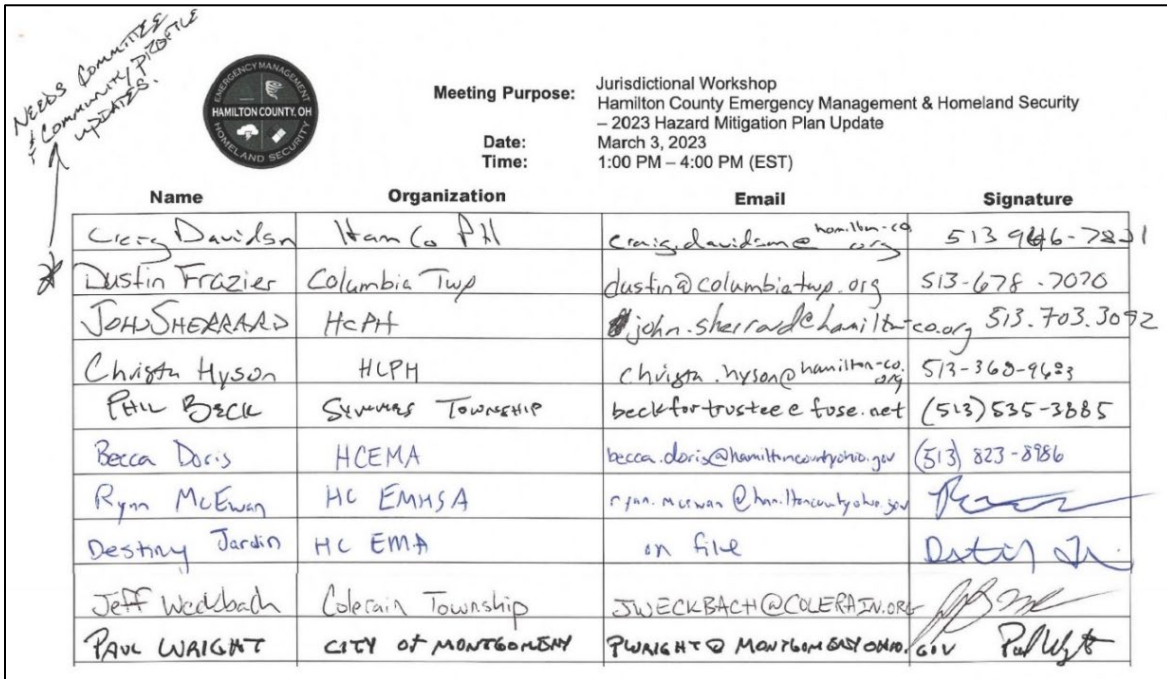 NEEDS COMMITTEE
& COMMUNITY PROFILE
UPDATES.
EMERGENCY MANAGEMENT
HAMILTON COUNTY, OH
HOMELAND SECURITY
Meeting Purpose: Jurisdictional Workshop
Hamilton County Emergency Management & Homeland Security
– 2023 Hazard Mitigation Plan Update
Date: March 3, 2023
Time: 1:00 PM – 4:00 PM (EST)
Name Organization Email Signature
Craig Davidson Ham Co PH craig.davidson@hamilton-co.org 513 946-7831
* Dustin Frazier Columbia Twp dustin@columbiatwp.org 513-678-7070
JOHN SHERRARD HCPH john.sherrard@hamilton-co.org 513.703.3092
Christa Hyson HCPH christa.hyson@hamilton-co.org 513-368-9623
PHIL BECK SYMMES TOWNSHIP beckfortrustee@fuse.net (513) 535-3885
Becca Doris HCEMA becca.doris@hamiltoncountyohio.gov (513) 823-8986
Ryan McEwan HC EMHSA ryan.mcewan@hamiltoncountyohio.gov
Destiny Jardin HC EMA on file
Jeff Weckbach Colerain Township JWECKBACH@COLERAIN.ORG
PAUL WRIGHT CITY OF MONTGOMERY PWRIGHT@MONTGOMERYOHIO.GOV